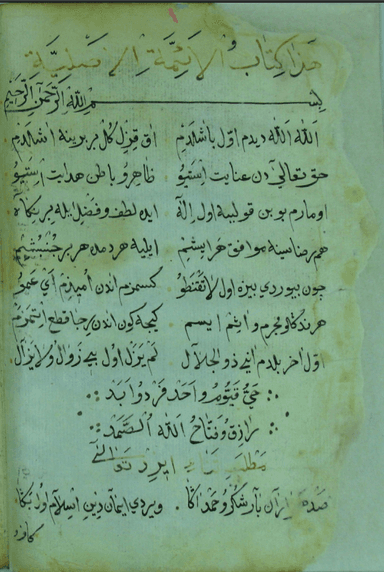 هذا كتاب الائمة الا
بسم الله الرحمن الرحيم
الله الله ديدم اول باشلدم اق قزل كل بربرينه اشلدم
حق تعالى دن عنايت استيو ظاهر و باطن هدايت استيو
اومارم بو بن قولينه اول اله ايده لطف و فضل ايله بر نكاه
هم رضاسنه موافق هر ايشم ايليه هر دمده هر بر جنبشم
چون بيوردي بيزه اول لا تقنطو كسمزم اندن اميدم اي عمو
هر نه كناه و مجرم و آثم ايسم كيجه كون اندن رجا قطع ايتمزم
اول آخر بلدم اني ذو الجلال لم يزل اول حي زوال و لا يزال
حي قيوم واحد فرد و ابد
رازق و فتاح الله الصمد
صد هزاران بار شكر و حمد اكا ويردي ايمان دين اسلام اول بكا